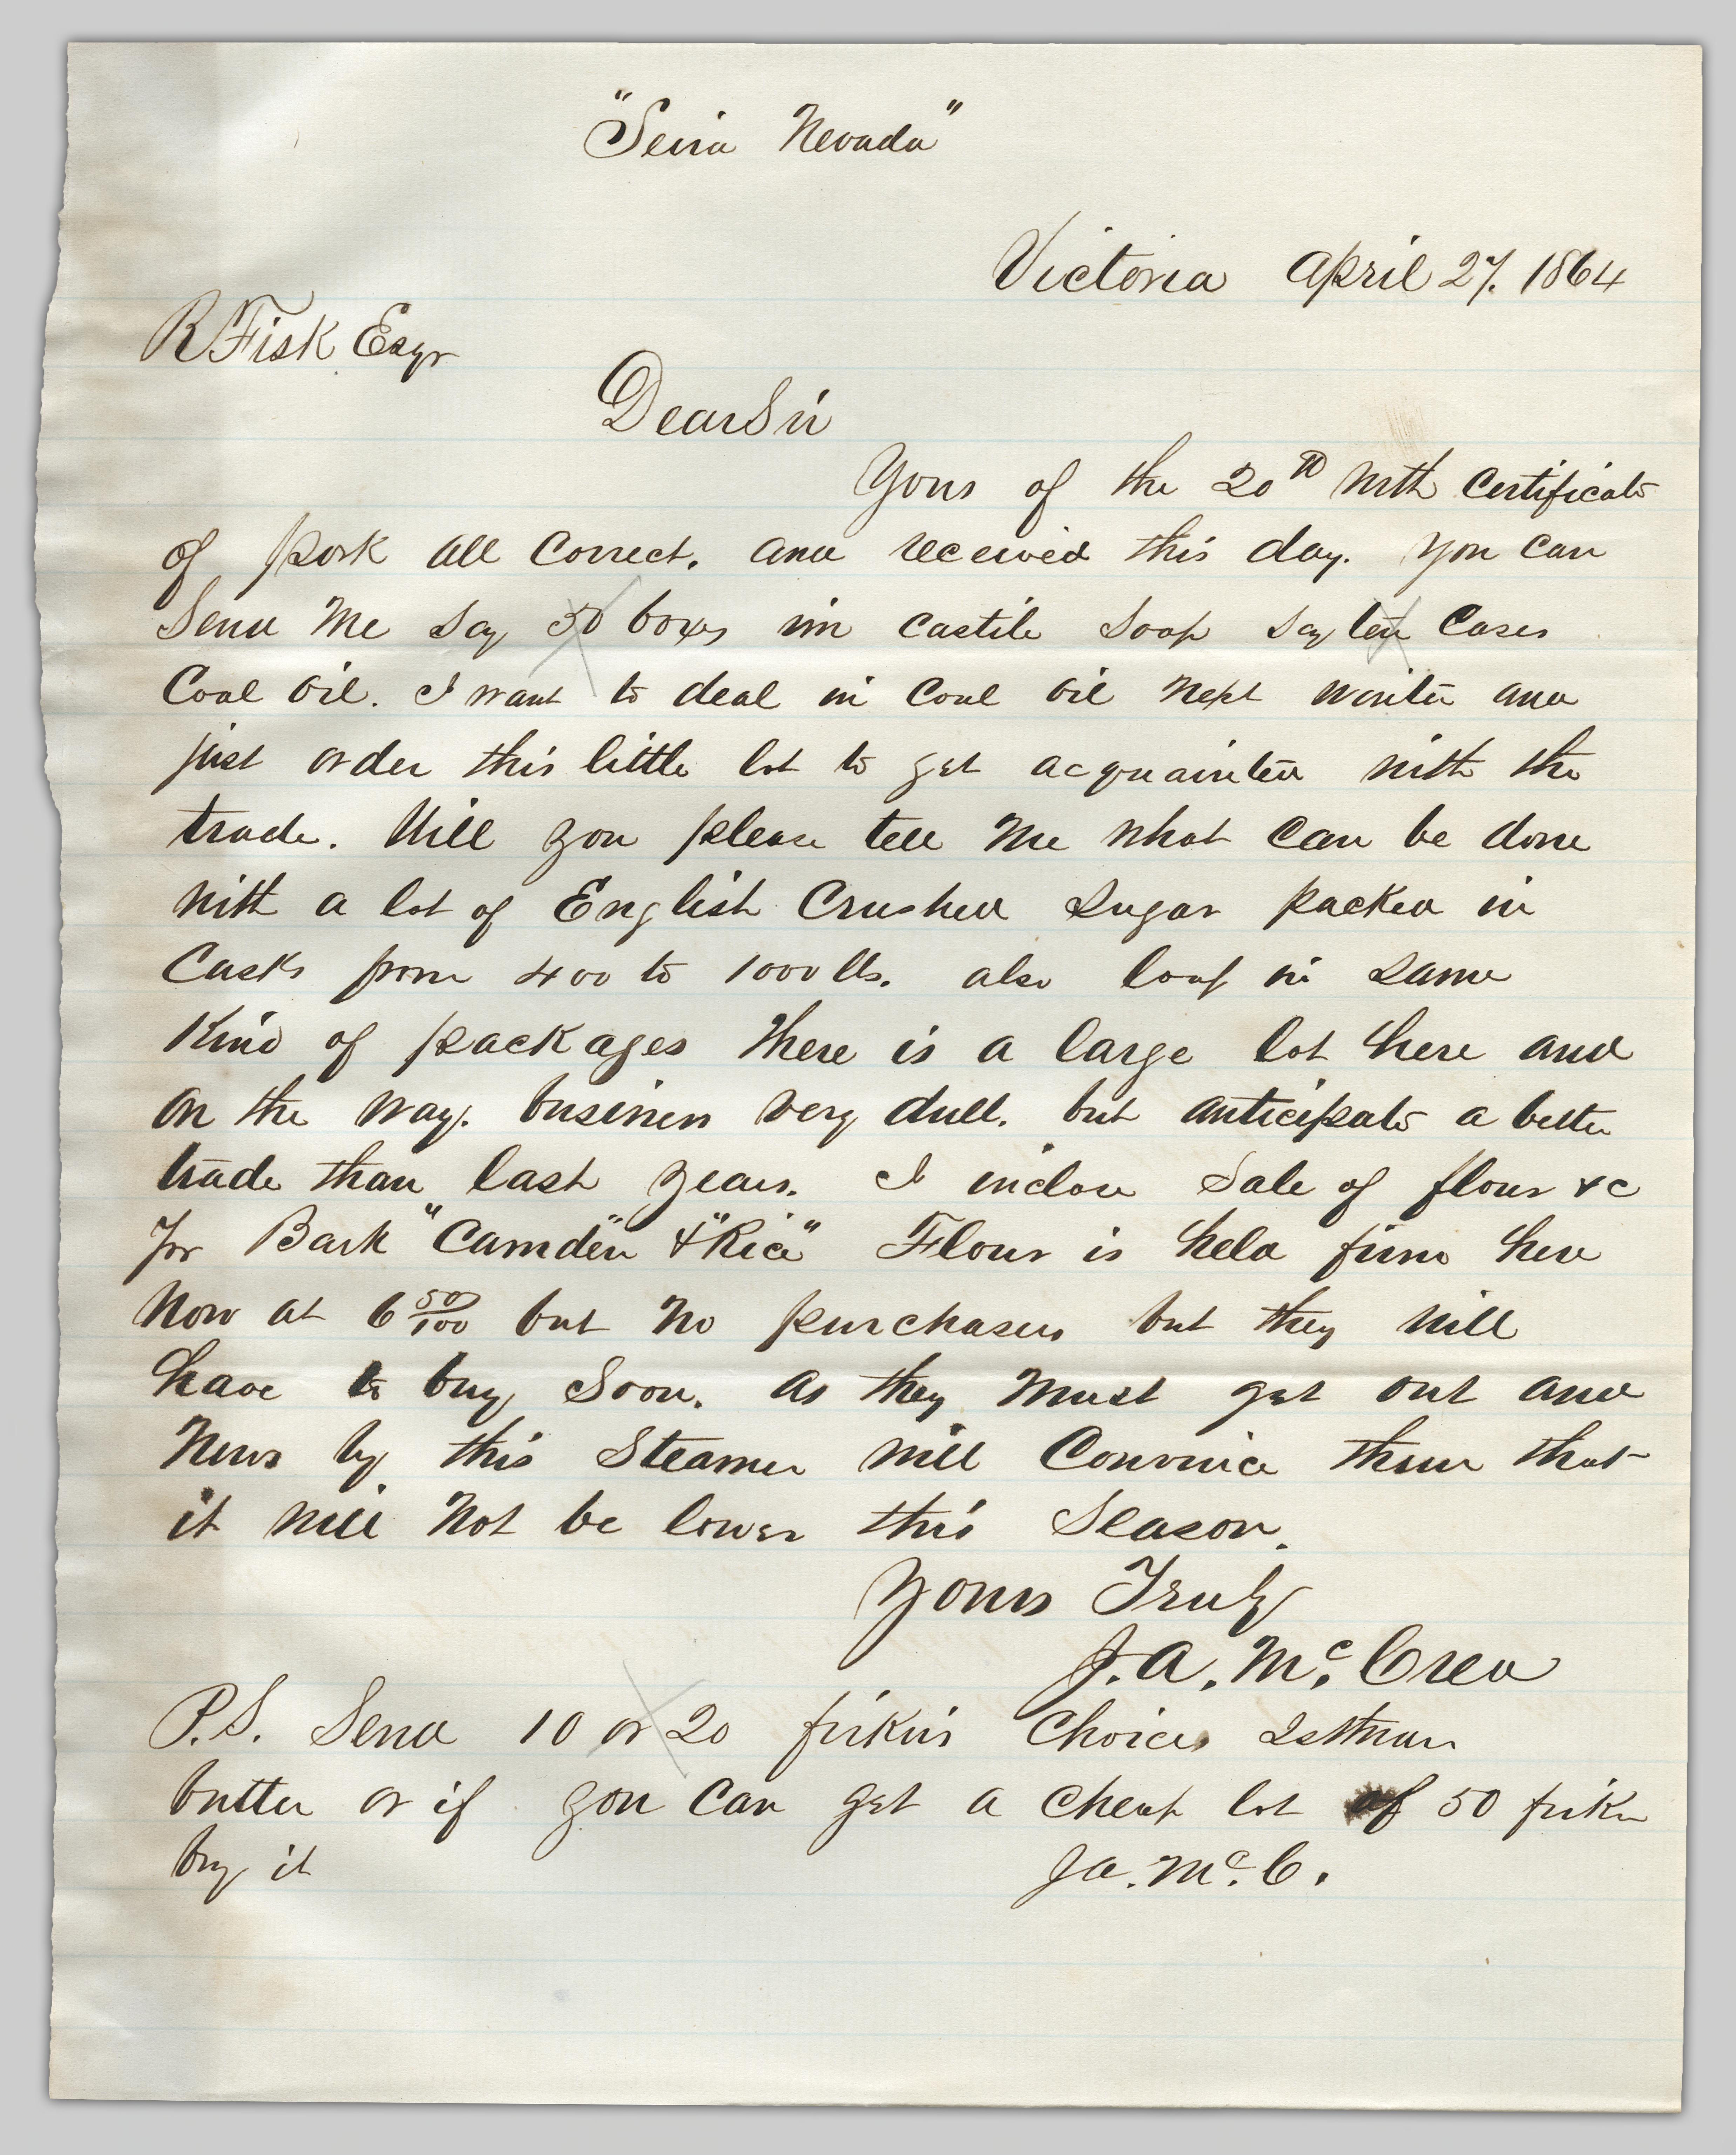 "Seira Nevada"
Victoria April 27. 1864
R Fisk Esqr
Dear Sir
Yours of the 20th with Certificate
of pork all Correct. and received this day. You can
Send Me Say 50 boxes im castile Soap Say ten Cases
Coal Oil. I want to deal in Coal Oil next winter and
just order this little lot to get acquainted with the
trade. Will you please tell me what Can be done
with a lot of English Crushed Sugar packed in
Casks from 400 to 1000 lbs. also loaf in same
Kind of packages There is a large lot here and
on the way. business very dull. but anticipate a better
trade than last year. I inclose Sale of flour &c
for Bark "Camden" & "Rice" Flour is held firm here
Now at 6 50/100 but No purchasers but they will
have to buy Soon. as they must get out and
News by this Steamer will Convince them that
it will Not be lower this Season.
Yours Truly
J. A. McCrea
P.S. Send 10 or 20 firkins Choice Isthmus
butter or if you Can get a Cheap lot of 50 firkin
buy it
J A. McC.